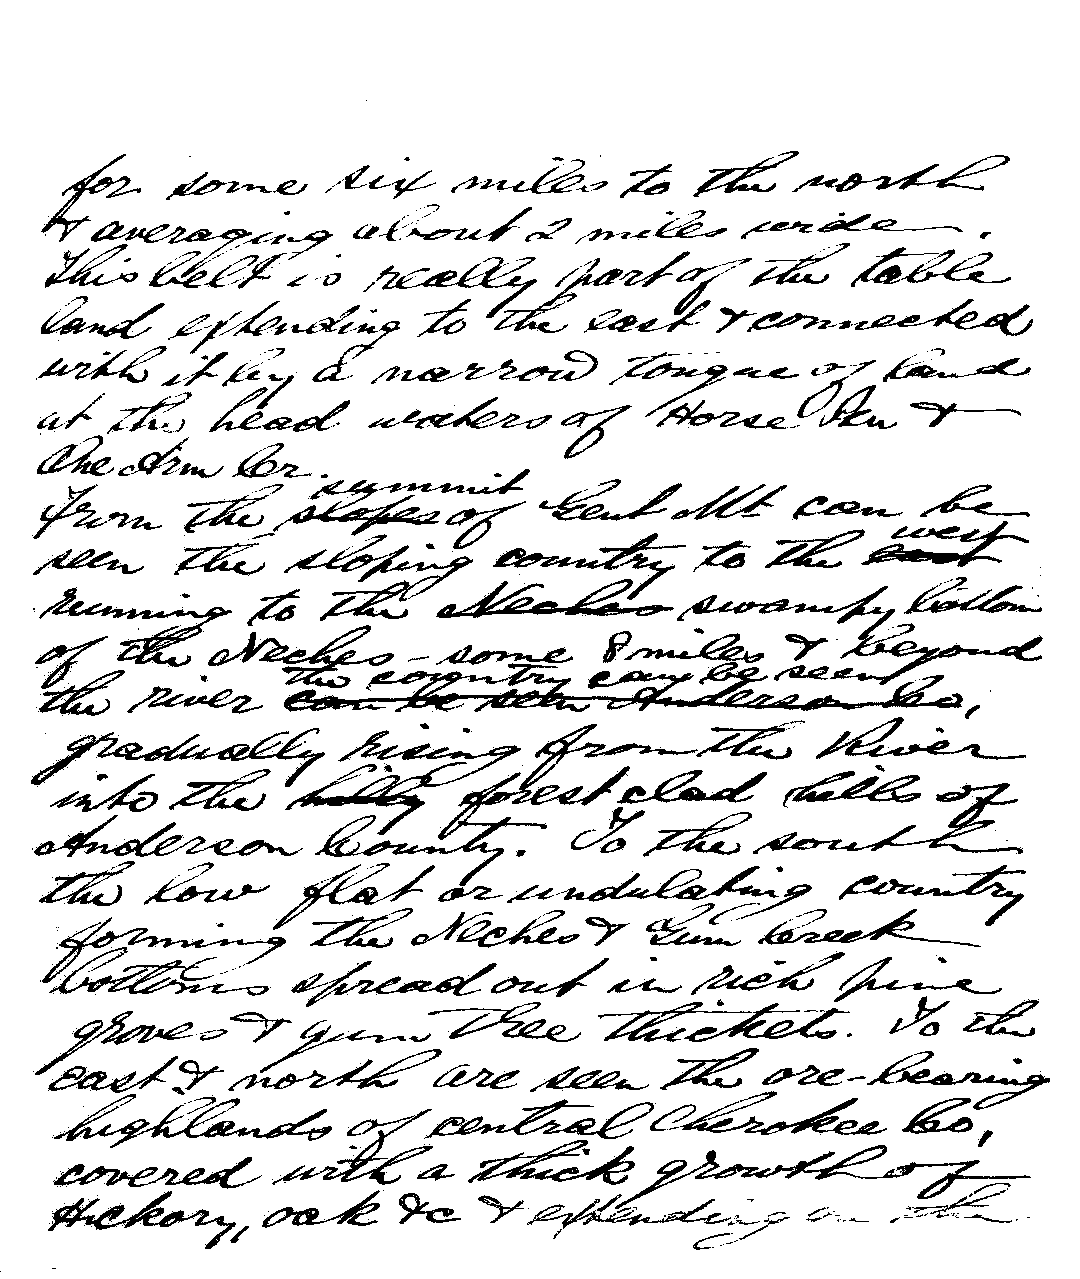 for some six miles to the north
& averaging about 2 miles wide.
This belt is really part of the table
land extending to the east & connected
with it by a narrow tongue of land
at the head waters of Horse Pen &
One Arm Cr.
summit
From the slopes of Gent Mt can be
west
seen the sloping country to the east
running to the Neches swampy bottom
of the Neches - some 8 miles & beyond
the country can be seen
the river can be seen Anderson Co,
gradually rising from the River
into the hilly forest clad hills of
Anderson County. To the south
the low flat or undulating country
forming the Neches & Gum Creek
bottoms spread out in rich pine
groves & gum tree thickets. To the
east & north are seen the ore-bearing
highlands of central Cherokee Co,
covered with a thick growth of
Hickory, oak &c & extending on the